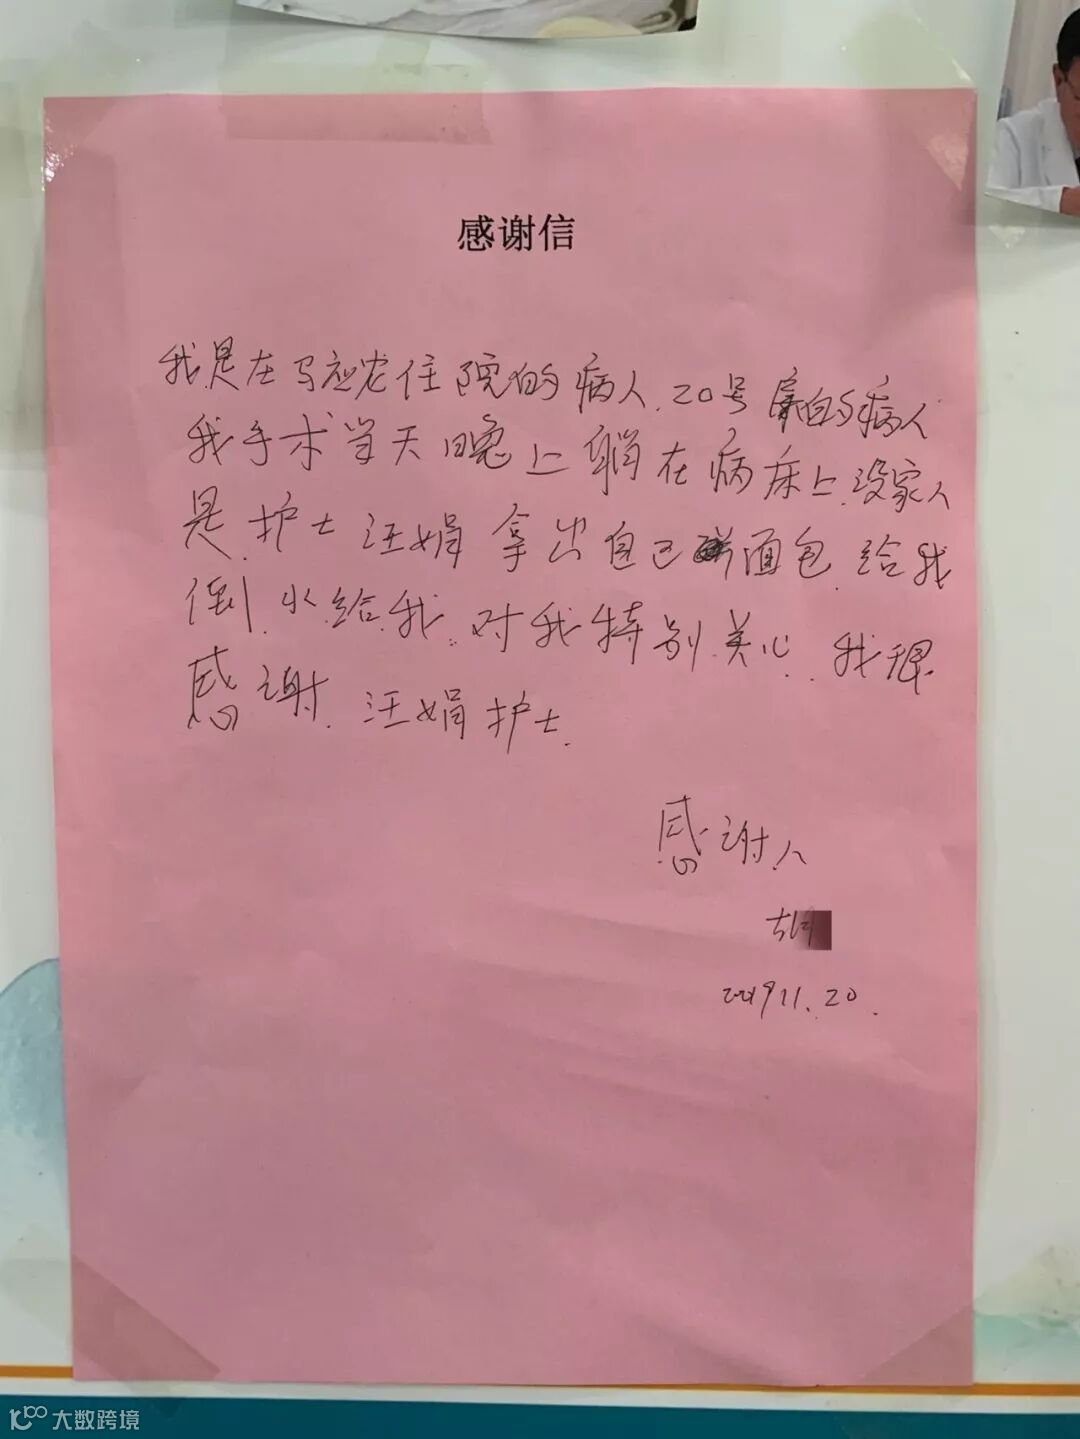 感谢信
我是在马应龙住院的病人.20号床的病人
我手术当天晚上躺在病床上.没家人
是.护士汪娟拿出自己面包.给我
倒.水.给.我.对我特别.关心.我很
感谢.汪娟护士.
感谢人
胡
2019.11.20.
大数跨境